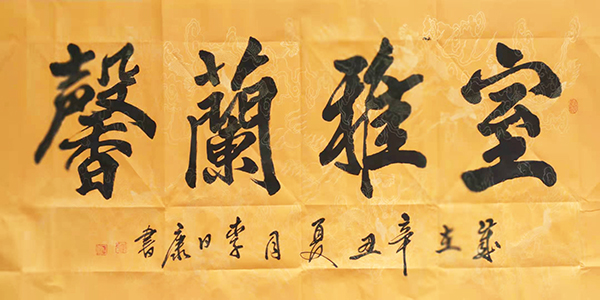 室雅蘭馨
歲在辛丑夏月李日康書